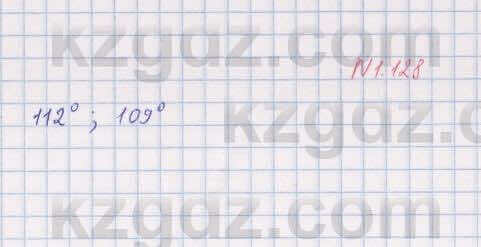 kzgdz.com
N 1.128
112° ; 109°
kzgdz.com
kzgdz.com